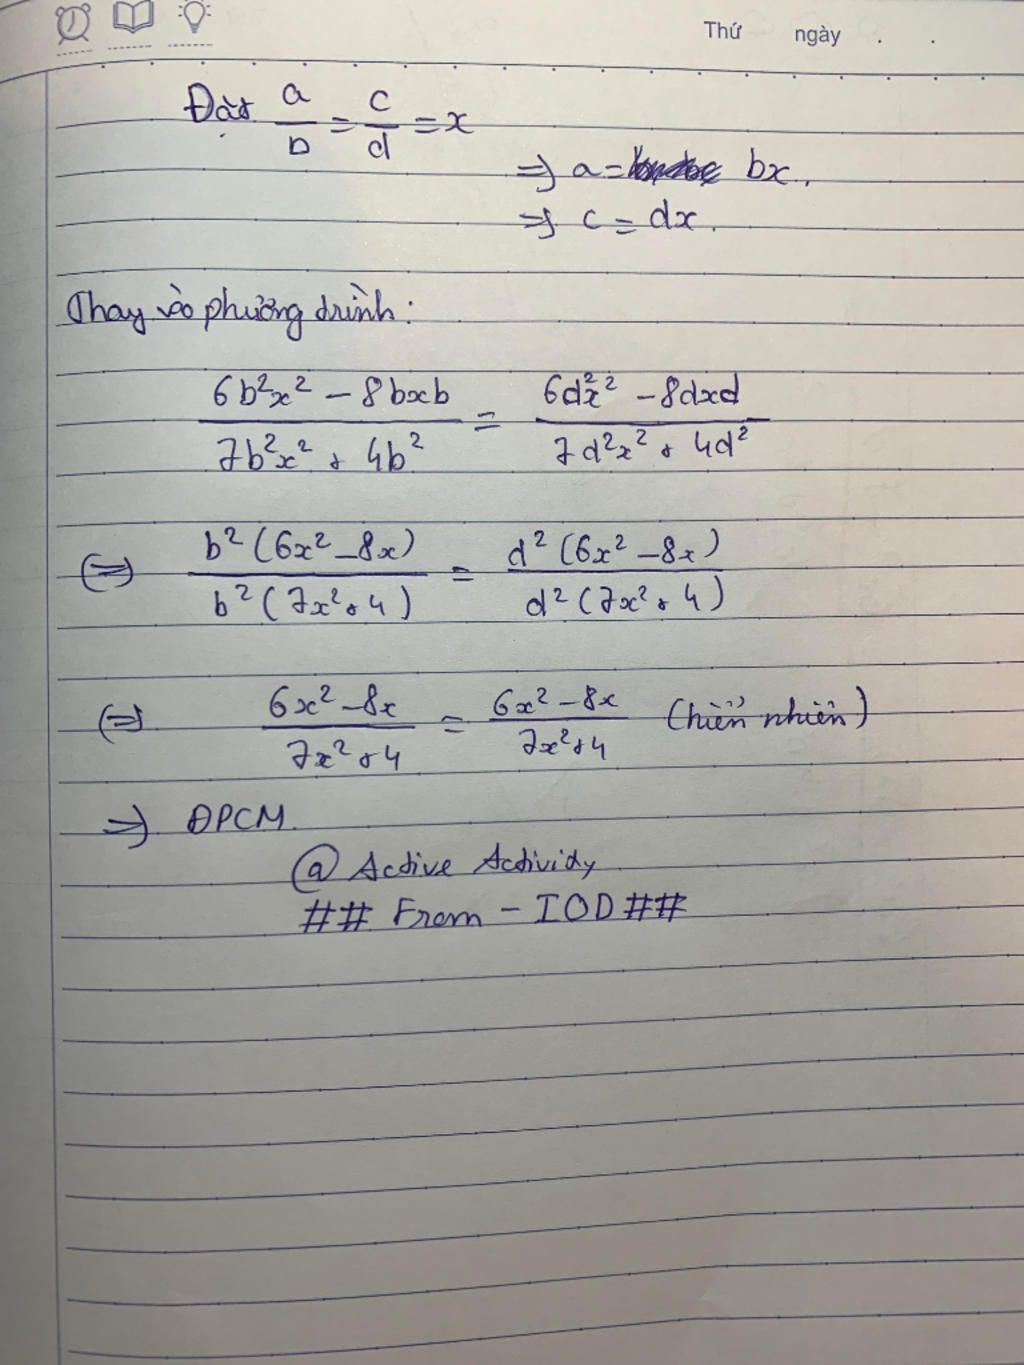 Thứ ngày . .
Đặt a/b = c/d = x
=> a = bx.
=> c = dx.
Thay vào phương trình:
(6b²x² - 8bxb)/(7b²x² + 4b²) = (6d²x² - 8dxd)/(7d²x² + 4d²)
(=) b²(6x² - 8x)/b²(7x² + 4) = d²(6x² - 8x)/d²(7x² + 4)
(=) (6x² - 8x)/(7x² + 4) = (6x² - 8x)/(7x² + 4) (hiển nhiên)
=> ĐPCM.
@ Active Activity
## From - IOD ##